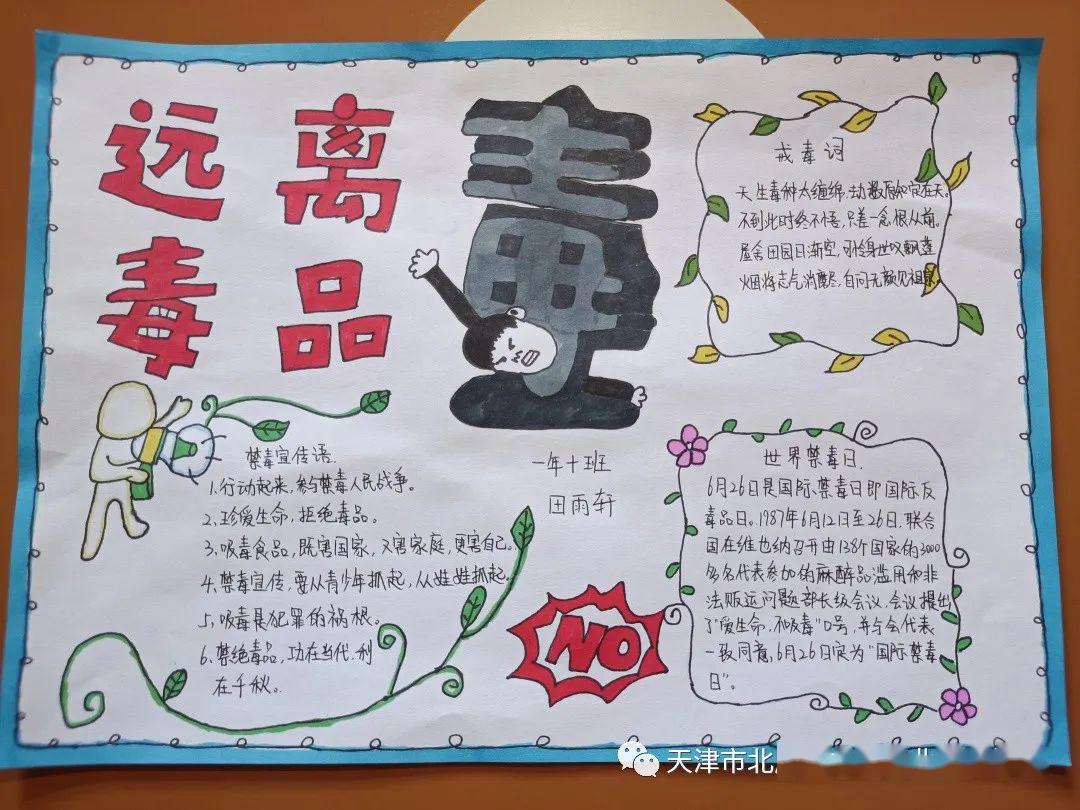 远离
毒品
毒
戒毒词
天生毒种太缠绵,劫数原知定在天。
不到此时终不悟,只差一念恨从前。
屋舍田园日渐空,可怜身世叹飘蓬
烟将志气消磨尽,自问无颜见祖宗
禁毒宣传语.
1.行动起来,参与禁毒人民战争。
2.珍爱生命,拒绝毒品。
3.吸毒食品,既害国家,又害家庭,更害自己。
4.禁毒宣传,要从青少年抓起,从娃娃抓起。
5.吸毒是犯罪的祸根。
6.禁绝毒品,功在当代,利
在千秋。
一年十班
田雨轩
NO
世界禁毒日.
6月26日是国际禁毒日即国际反
毒品日。1987年6月12日至26日,联合
国在维也纳召开由138个国家的3000
多名代表参加的麻醉品滥用和非
法贩运问题部长级会议,会议提出
了"爱生命,不吸毒"口号,并与会代表
一致同意,6月26日定为"国际禁毒
日"。
天津市北